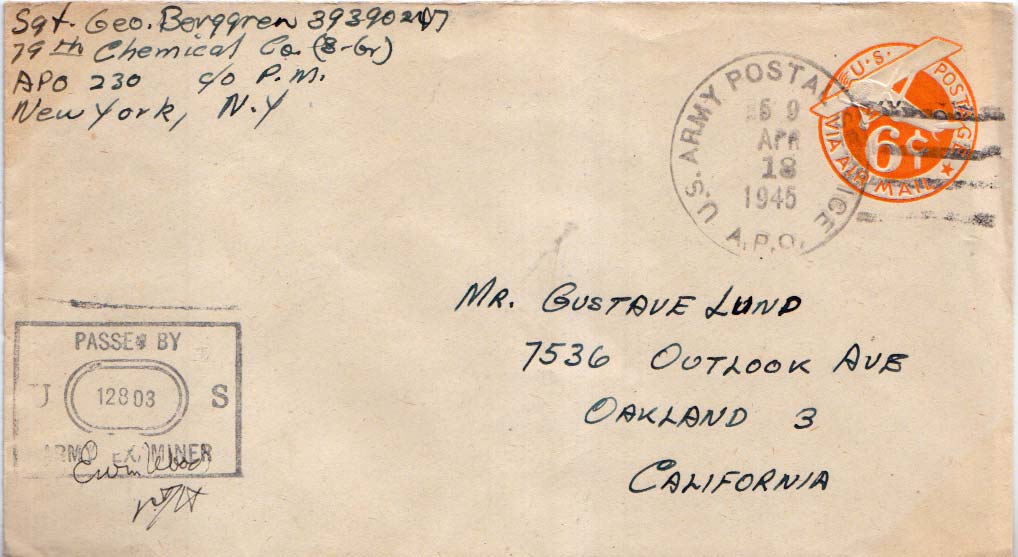 Sgt. Geo. Berggren
79th Chemical Co. (S-Gr)
APO 230 c/o P.M.
New York, N.Y
U.S. ARMY POSTAL SERVICE
APR
18
1945
A.P.O.
U.S. POSTAGE
6¢
VIA AIR MAIL
Mr. Gustave Lund
7536 Outlook Ave
Oakland 3
California
PASSED BY
U 12803 S
ARMY EXAMINER